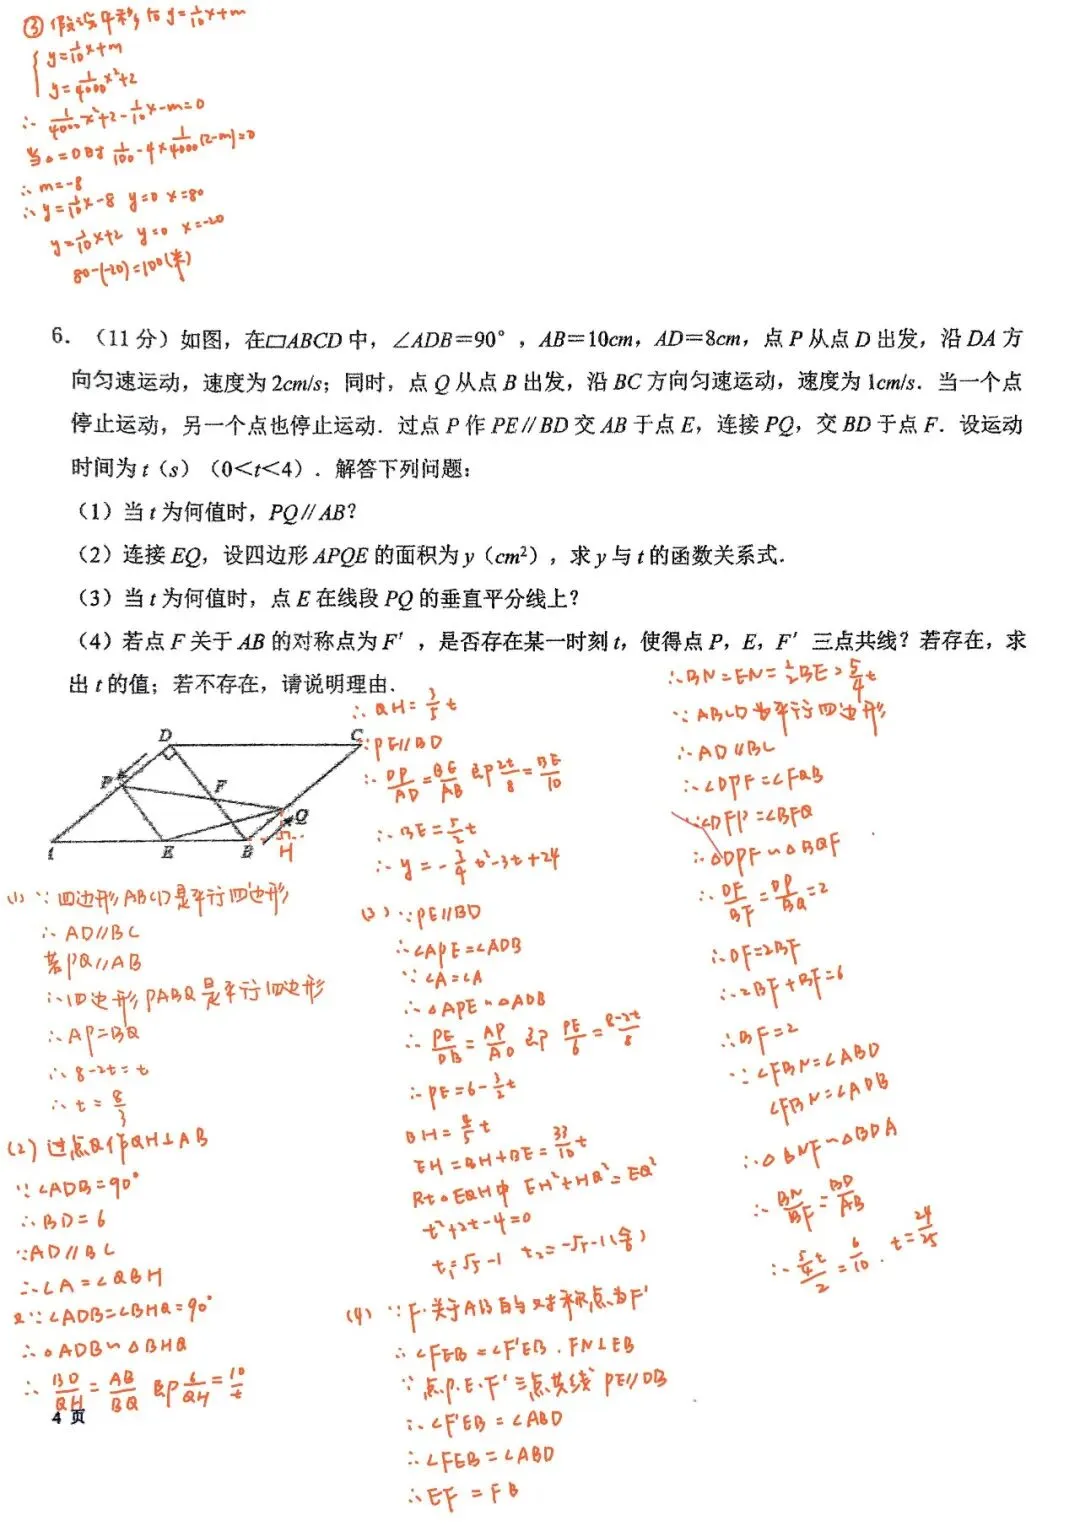 ③ 假设平移后 y=1/10x+m
{ y=1/10x+m
y=1/4000x²+2
∴ 1/4000x²+2-1/10x-m=0
当△=0时 1/100-4×1/4000(2-m)=0
∴ m=-8
∴ y=1/10x-8 y=0 x=80
y=1/10x+2 y=0 x=-20
80-(-20)=100(米)
6. （11 分）如图，在▱ABCD 中，∠ADB＝90°，AB＝10cm，AD＝8cm，点 P 从点 D 出发，沿 DA 方
向匀速运动，速度为 2cm/s；同时，点 Q 从点 B 出发，沿 BC 方向匀速运动，速度为 1cm/s．当一个点
停止运动，另一个点也停止运动．过点 P 作 PE∥BD 交 AB 于点 E，连接 PQ，交 BD 于点 F．设运动
时间为 t（s）（0＜t＜4）．解答下列问题：
（1）当 t 为何值时，PQ∥AB？
（2）连接 EQ，设四边形 APQE 的面积为 y（cm²），求 y 与 t 的函数关系式．
（3）当 t 为何值时，点 E 在线段 PQ 的垂直平分线上？
（4）若点 F 关于 AB 的对称点为 F′，是否存在某一时刻 t，使得点 P，E，F′ 三点共线？若存在，求
出 t 的值；若不存在，请说明理由．
D
C
P
F
Q
E
B
H
(1) ∵四边形ABCD是平行四边形
∴ AD∥BC
若PQ∥AB
∴四边形PABQ是平行四边形
∴AP=BQ
∴ 8-2t=t
∴ t=8/3
(2) 过点Q作QH⊥AB
∵ ∠ADB=90°
∴ BD=6
∵AD∥BC
∴∠A=∠QBH
又∵∠ADB=∠BHQ=90°
∴△ADB∽△BHQ
∴ BD/QH=AB/BQ 即 6/QH=10/t
4 页
∴ QH=3/5t
∵PE∥BD
∴ DP/AD=BE/AB 即 2t/8=BE/10
∴BE=5/2t
∴ y=-3/4t²-3t+24
(3) ∵PE∥BD
∴∠APE=∠ADB
∵∠A=∠A
∴△APE∽△ADB
∴ PE/DB=AP/AD 即 PE/6=8-2t/8
∴PE=6-3/2t
BH=4/5t
EH=BH+BE=33/10t
Rt△EQH中 EH²+HQ²=EQ²
t²+2t-4=0
t₁=√5-1 t₂=-√5-1(舍)
(4) ∵F关于AB的对称点为F'
∴∠FEB=∠F'EB．FN⊥EB
∵点P.E.F'三点共线 PE∥DB
∴∠F'EB=∠ABD
∴∠FEB=∠ABD
∴EF=FB
∴BN=EN=1/2BE=5/4t
∵ABCD为平行四边形
∴AD∥BC
∴∠DPF=∠FQB
∵∠DFP=∠BFQ
∴△DPF∽△BQF
∴ DF/BF=DP/BQ=2
∴DF=2BF
∴2BF+BF=6
∴BF=2
∵∠FBN=∠ABD
∠FBN=∠ADB
∴△BNF∽△BDA
∴ BN/BF=BD/AB
∴ 5/4t/2=6/10．t=24/25